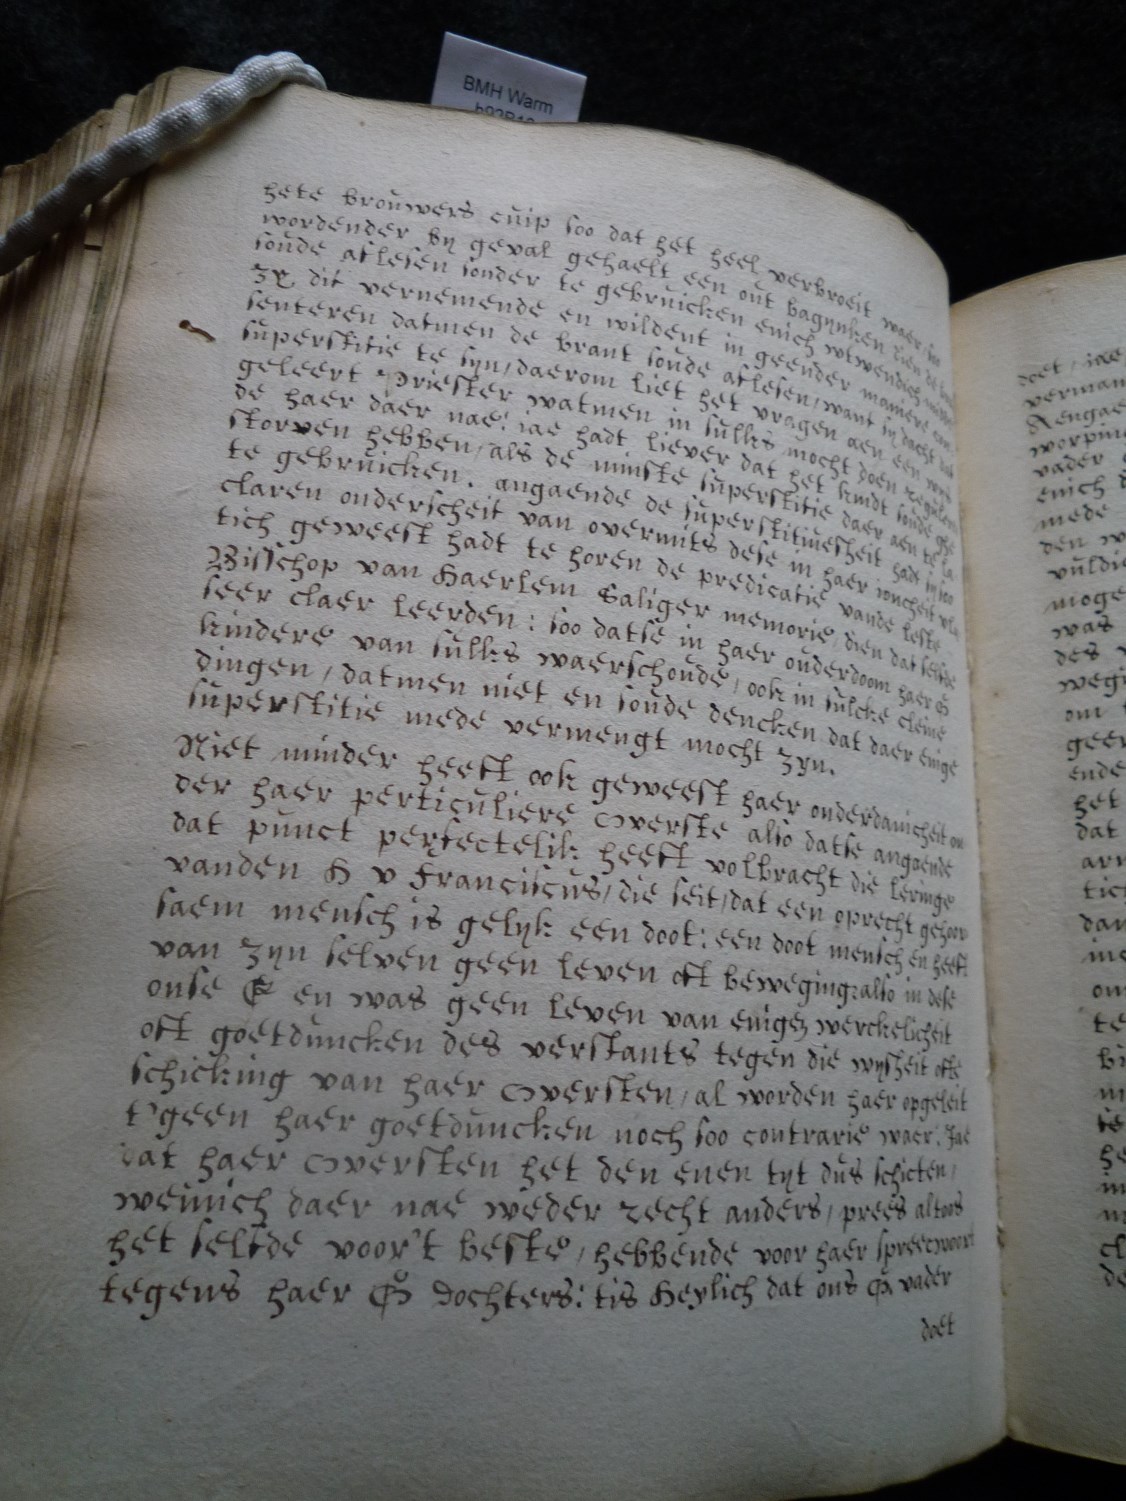 BMH Warm
h92B13
hete brouwers cuip soo dat het heel verbroeit waer, en
wordender by geval gehaelt een out bagynken dien de brant
soude aflesen sonder te gebruicken enich wtwendich
zy dit vernemende en wildent in geender maniere con
senteren datmen de brant soude aflesen, want sy dacht dat
superstitie te syn, daerom liet het vragen aen een
geleert Priester watmen in sulks mocht doen
de haer daer nae: iae hadt liever dat het kindt soude ghe
storven hebben, als de minste superstitie daer aen te la
te gebruicken. angaende de superstitiuesheit hadt sy soo
claren onderscheit van overmits dese in haer ioncheit vly
tich geweest hadt te horen de predicatie vande leste
Bisschop van Haerlem Saliger memorie, dien dat selfde
seer claer leerden: soo datse in haer ouderdoom haer G
kindere van sulks waerschoude, ook in sulcke cleine
dingen, datmen niet en soude dencken dat daer enige
superstitie mede vermengt mocht zyn.
Niet minder heeft ook geweest haer onderdanicheit on
der haer perticuliere Overste also datse angaende
dat punct perfectelik heeft volbracht die leringe
vanden H v Franciscus, die seit, dat een oprecht gehoor
saem mensch is gelyk een doot: een doot mensch en heeft
van zyn selven geen leven oft beweging: also in dese
onse G en was geen leven van eniger werckelicheit
oft goetduncken des verstants tegen die wysheit ofte
schicking van haer Oversten, al worden haer opgeleit
t'geen haer goetduncken noch soo contrarie waer. Jae
dat haer Oversten het den enen tyt dus schicten,
weinich daer nae weder recht anders, prees altoos
het selfde voor't beste, hebbende voor haer spreecwoort
tegens haer G dochters: tis Heylich dat ons G vader
doet
doet, iae
verman
worpin
vader
enich
mede
den
vuldi
moge
was
des
wegi
om
geer
ende
het
dat
arm
tich
dan
me
om
te
bi
m
te
he
cl
de